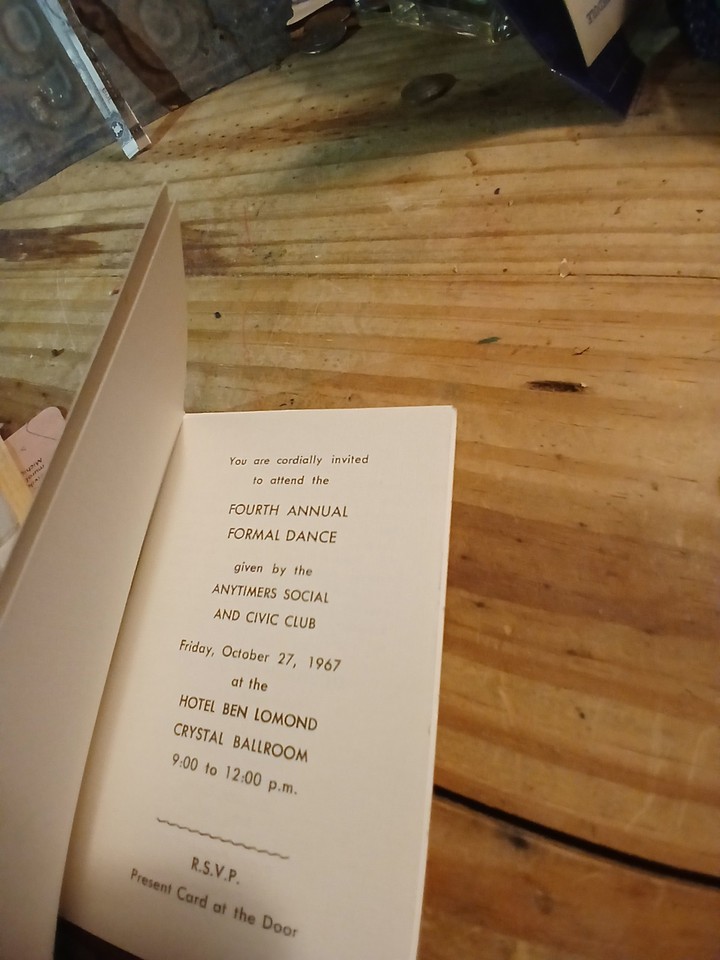 You are cordially invited
to attend the
FOURTH ANNUAL
FORMAL DANCE
given by the
ANYTIMERS SOCIAL
AND CIVIC CLUB
Friday, October 27, 1967
at the
HOTEL BEN LOMOND
CRYSTAL BALLROOM
9:00 to 12:00 p.m.
R.S.V.P.
Present Card at the Door